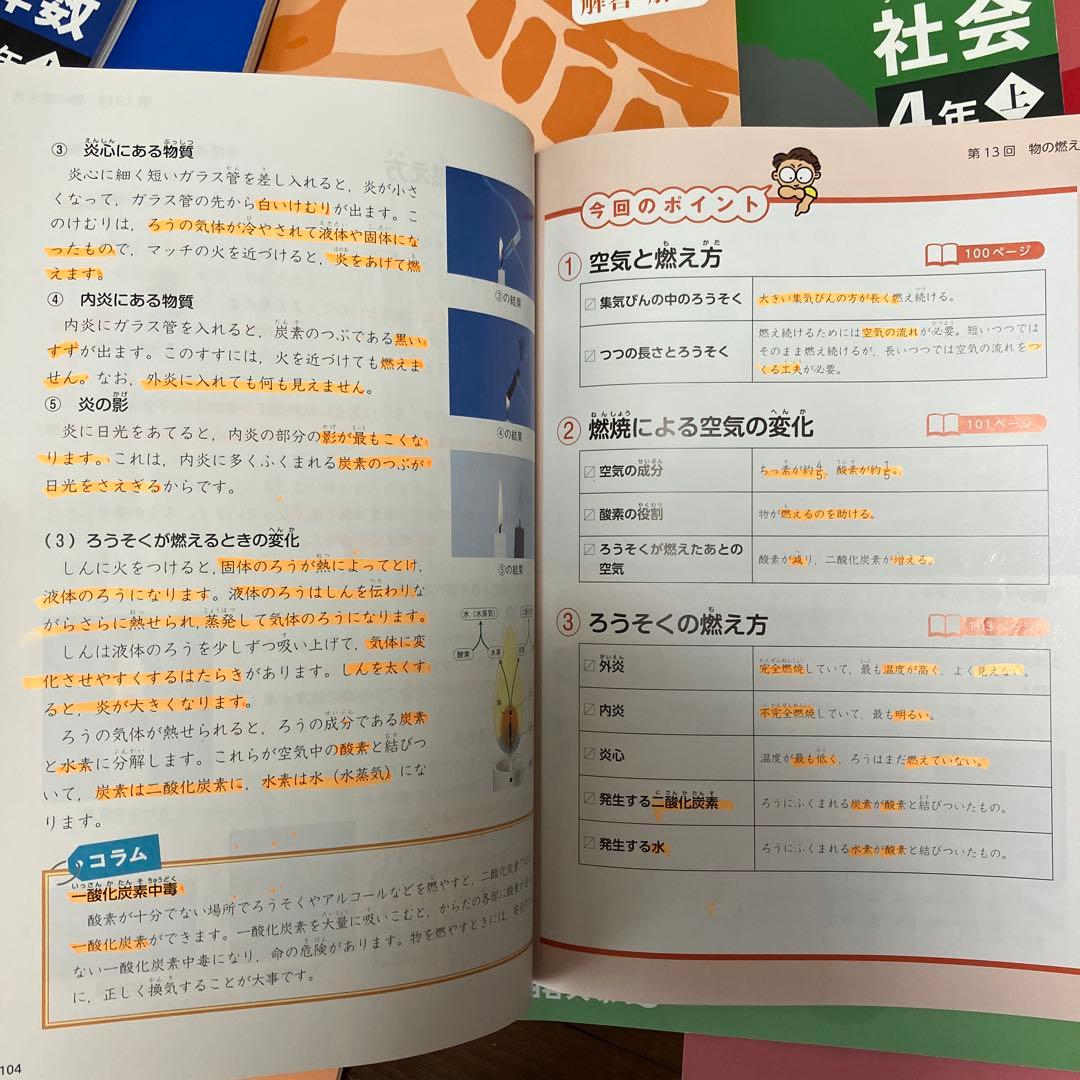 算数
社会
4年 上
③ 炎心にある物質
炎心に細く短いガラス管を差し入れると，炎が小さ
くなって，ガラス管の先から白いけむりが出ます。こ
のけむりは，ろうの気体が冷やされて液体や固体にな
ったもので，マッチの火を近づけると，炎をあげて燃
えます。
③の結果
④ 内炎にある物質
内炎にガラス管を入れると，炭素のつぶである黒い
すすが出ます。このすすには，火を近づけても燃えま
せん。なお，外炎に入れても何も見えません。
④の結果
⑤ 炎の影
炎に日光をあてると，内炎の部分の影が最もこくな
ります。これは，内炎に多くふくまれる炭素のつぶが
日光をさえぎるからです。
⑤の結果
（3）ろうそくが燃えるときの変化
しんに火をつけると，固体のろうが熱によってとけ，
液体のろうになります。液体のろうはしんを伝わりな
がらさらに熱せられ，蒸発して気体のろうになります。
しんは液体のろうを少しずつ吸い上げて，気体に変
化させやすくするはたらきがあります。しんを太くす
ると，炎が大きくなります。
ろうの気体が熱せられると，ろうの成分である炭素
と水素に分解します。これらが空気中の酸素と結びつ
いて，炭素は二酸化炭素に，水素は水（水蒸気）にな
ります。
水（水蒸気）
酸素
水素
コラム
一酸化炭素中毒
酸素が十分でない場所でろうそくやアルコールなどを燃やすと，二酸化炭素で
一酸化炭素ができます。一酸化炭素を大量に吸いこむと，からだの各部に酸素が
ない一酸化炭素中毒になり，命の危険があります。物を燃やすときには，安全
に，正しく換気することが大事です。
104
第13回 物の燃え
今回のポイント
① 空気と燃え方 100ページ
集気びんの中のろうそく 大きい集気びんの方が長く燃え続ける。
つつの長さとろうそく 燃え続けるためには空気の流れが必要。短いつつでは
そのまま燃え続けるが，長いつつでは空気の流れをつ
くる工夫が必要。
② 燃焼による空気の変化 101ページ
空気の成分 ちっ素が約4/5，酸素が約1/5。
酸素の役割 物が燃えるのを助ける。
ろうそくが燃えたあとの
空気 酸素が減り，二酸化炭素が増える。
③ ろうそくの燃え方 103ページ
外炎 完全燃焼していて，最も温度が高く，よく見えない。
内炎 不完全燃焼していて，最も明るい。
炎心 温度が最も低く，ろうはまだ燃えていない。
発生する二酸化炭素 ろうにふくまれる炭素が酸素と結びついたもの。
発生する水 ろうにふくまれる水素が酸素と結びついたもの。